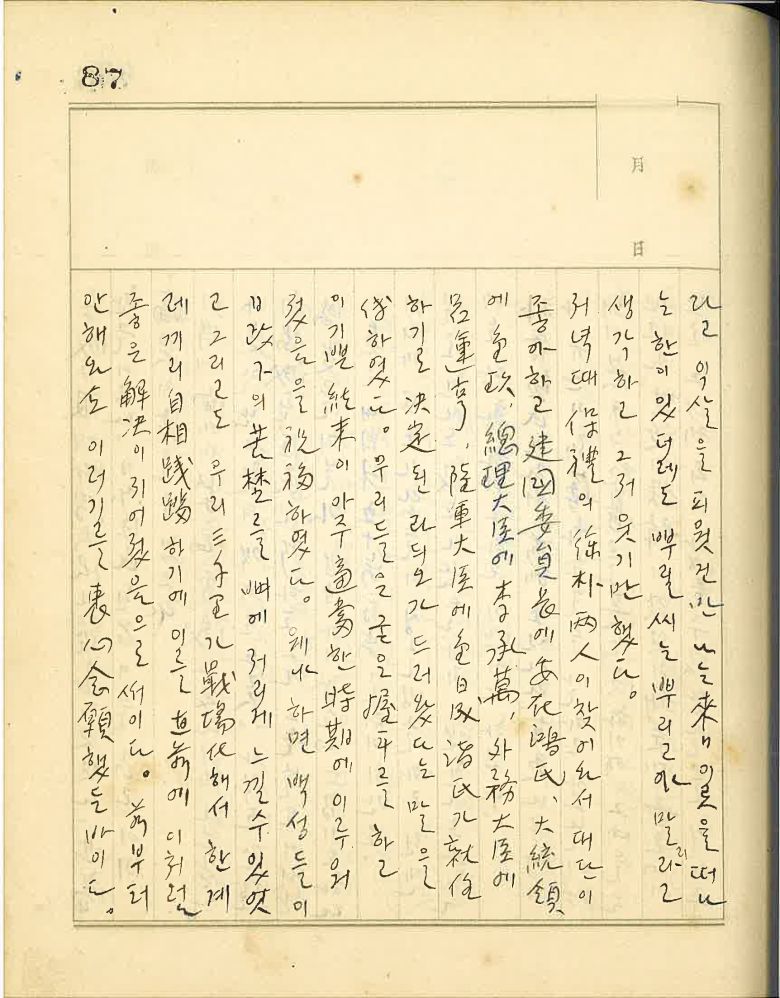 87
月
日
라고 익살을 피웟건만 나는 來日 이곳을 떠나
는 한이 있더래도 뿌릴 씨는 뿌리고야 말리라고
생각하고 그저 웃기만 했다.
저녁때 保禮의 徐朴 両人이 찾어와서 대단이
좋아하고 建國委員長에 安在鴻氏、大統領
에 金玖、總理大臣에 李承萬, 外務大臣에
呂運亨, 陸軍大臣에 金日成 諸氏가 就任
하기로 決定된 라듸오가 드러왔다는 말을
傳하였다。우리들은 굳은 握手를 하고
이 기쁜 結末이 아주 適當한 時期에 이루워
젔음을 을 祝福하였다。웨냐 하면 백성들이
日政下의 苦楚를 뼈에 저리게 느낄수있엇
고 그리고도 우리 三千里가 戰場化해서 한계
레끼리 自相踐踏하기에 이를 直前에 이처럼
좋은 解决이 지어젔음으로 써이다。前부터
안해와도 이러기를 衷心念願했든 바이다。